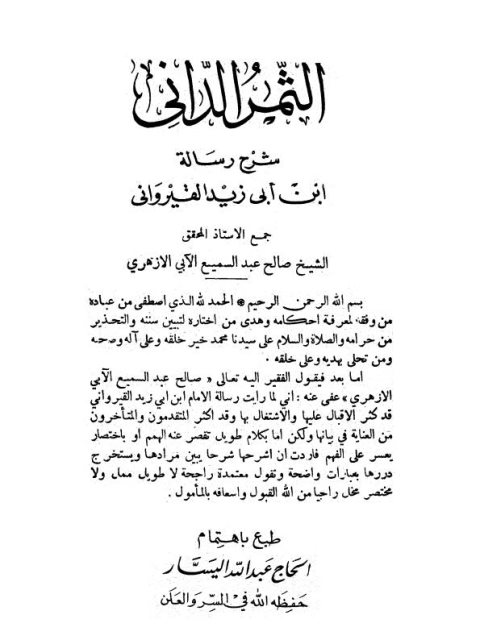 الثمر الداني
شرح رسالة
ابن أبي زيد القيرواني
جمع الاستاذ المحقق
الشيخ صالح عبد السميع الآبي الازهري
بسم الله الرحمن الرحيم * الحمد لله الذي اصطفى من عباده
من وفقه لمعرفة احكامه وهدى من اختاره لتبيين سننه والتحذير
من حرامه والصلاة والسلام على سيدنا محمد خير خلقه وعلى آله وصحبه
ومن تحلى بهديه وعلى خلقه .
اما بعد فيقول الفقير اليه تعالى « صالح عبد السميع الآبي
الازهري » عفي عنه : اني لما رايت رسالة الامام ابن ابي زيد القيرواني
قد كثر الاقبال عليها والاشتغال بها وقد اكثر المتقدمون والمتأخرون
من العناية في بيانها ولكن اما بكلام طويل تقصر عنه الهمم او باختصار
يعسر على الفهم فاردت ان اشرحها شرحا يبين مرادها ويستخرج
دررها بعبارات واضحة ونقول معتمدة راجحة لا طويل ممل ولا
مختصر مخل راجيا من الله القبول واسعافه بالمأمول .
طبع باهتمام
الحاج عبد الله اليسار
حفظه الله في السر والعلن